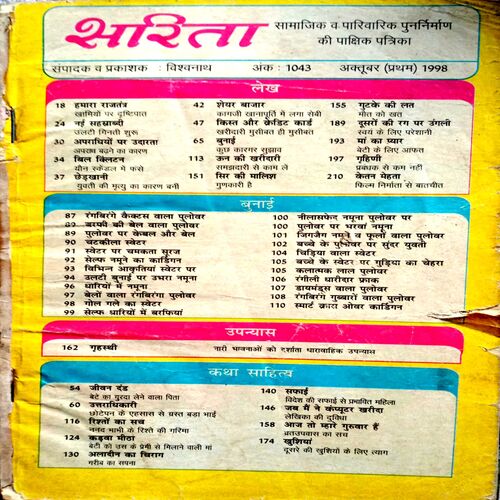 सरिता
सामाजिक व पारिवारिक पुनर्निर्माण
की पाक्षिक पत्रिका
संपादक व प्रकाशक : विश्वनाथ अंक : 1043 अक्तूबर (प्रथम) 1998
लेख
18 हमारा राजतंत्र
खामियों पर दृष्टिपात
24 नई सहस्राब्दी
उलटी गिनती शुरू
30 अपराधियों पर उदारता
अपराध बढ़ने का कारण
34 बिल क्लिंटन
यौन स्कैंडल में फंसे
37 छेड़खानी
युवती की मृत्यु का कारण बनी
42 शेयर बाजार
कागजी खानापूर्ति में लगा सेबी
47 किस्त और क्रेडिट कार्ड
खरीदारी मुसीबत ही मुसीबत
65 बुनाई
कुछ कारगर सुझाव
113 ऊन की खरीदारी
समझदारी से काम लें
151 सिर की मालिश
गुणकारी है
155 गुटके की लत
मौत को खत
189 दूसरों की रग पर उंगली
स्वयं के लिए परेशानी
193 मां का प्यार
बेटी के लिए आफत
197 गृहिणी
प्रबंधक से कम नहीं
210 केतन मेहता
फिल्म निर्माता से बातचीत
बुनाई
87 रंगबिरंगे कैक्टस वाला पुलोवर
89 बरफी की बेल वाला पुलोवर
89 पुलोवर पर केबल और बेल
90 चटकीला स्वेटर
91 स्वेटर पर चमकता सूरज
92 सेल्फ नमूने का कार्डिगन
93 विभिन्न आकृतियां स्वेटर पर
94 उलटी बुनाई पर उभरा नमूना
96 धारियों में नमूना
97 बेलों वाला रंगबिरंगा पुलोवर
98 गोल गले का स्वेटर
99 सेल्फ धारियों में बरफियां
100 नीलासफेद नमूना पुलोवर पर
100 पुलोवर पर भरवां नमूना
101 जिगजैग नमूने व फूलों वाला पुलोवर
102 बच्चे के पुलोवर पर सुंदर युवती
104 चिड़िया वाला स्वेटर
105 बच्चे के स्वेटर पर गुड़िया का चेहरा
105 कलात्मक लाल पुलोवर
106 रंगीली धारीदार फ्राक
107 डायमंड्स वाला पुलोवर
108 रंगबिरंगे गुब्बारों वाला पुलोवर
110 स्मार्ट क्रास ओवर कार्डिगन
उपन्यास
162 गृहस्थी नारी भावनाओं को दर्शाता धारावाहिक उपन्यास
कथा साहित्य
54 जीवन दंड
बेटे का गुरदा लेने वाला पिता
60 उत्तराधिकारी
छोटेपन के एहसास से ग्रस्त बड़ा भाई
116 रिश्तों का सच
ननद भाभी के रिश्ते की गरिमा
124 कड़वा मीठा
बेटी को उस के प्रेमी से मिलाने वाली मां
130 अलादीन का चिराग
गरीब का सपना
140 सफाई
विदेश की सफाई से प्रभावित महिला
146 जब मैं ने कंप्यूटर खरीदा
लेखिका की दुविधा
158 आज तो म्हारे गुरूवार हैं
व्रतउपवास का सच
174 खुशियां
दूसरे की खुशियों के लिए त्याग